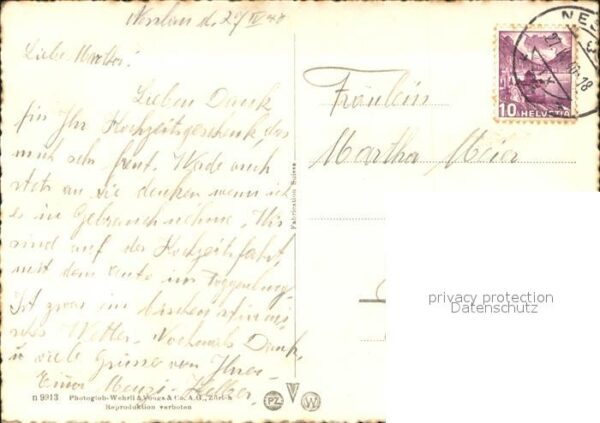 Nesslau d. 27 IV 48
Liebe Martha!
Lieben Dank
für Ihr Hochzeitsgeschenk, das
mich sehr freut. Werde auch
stets an Sie denken wenn ich
es in Gebrauch nehme. Wir
sind auf der Hochzeitsfahrt,
mit dem Auto im Toggenburg.
Ist zwar ein bischen
Wetter. Nochmals Dank,
u viele Grüsse von Ihrer
Fräulein
Martha Meier
NES
10 HELVETIA
Fabrication Suisse
privacy protection
Datenschutz
n 9913 Photoglob-Wehrli & Vouga & Co. A.G., Zürich
Reproduktion verboten
PZ
W